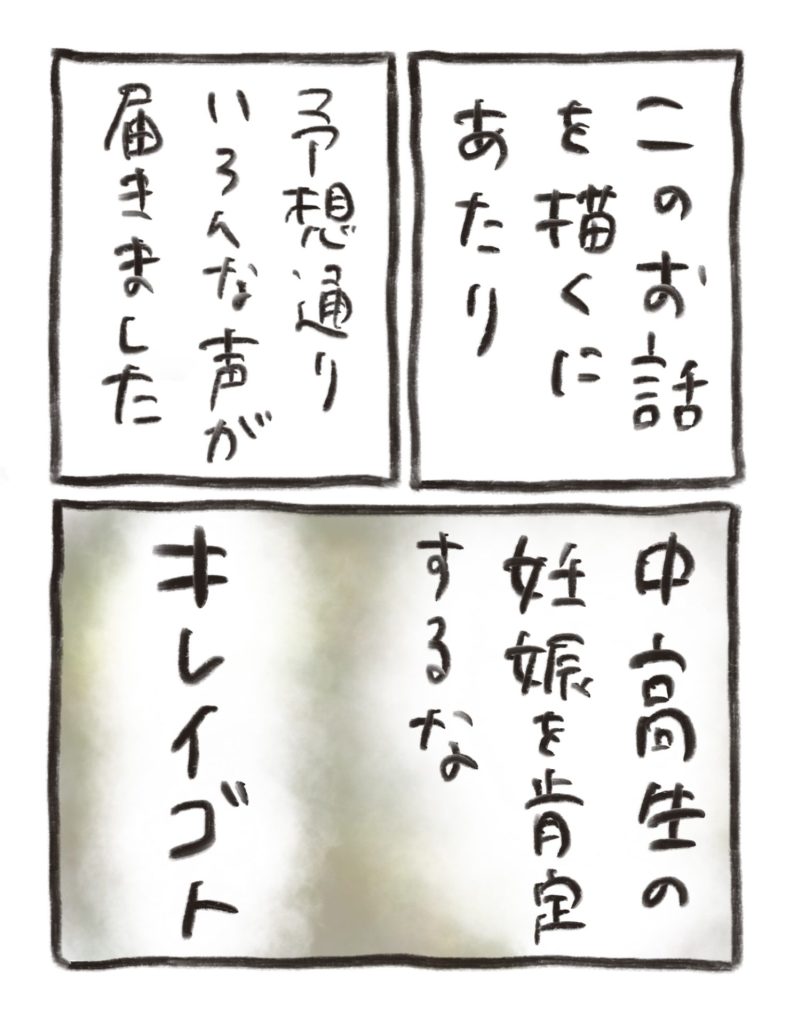 このお話
を描くに
あたり
予想通り
いろんな声が
届きました
中高生の
妊娠を肯定
するな
キレイゴト